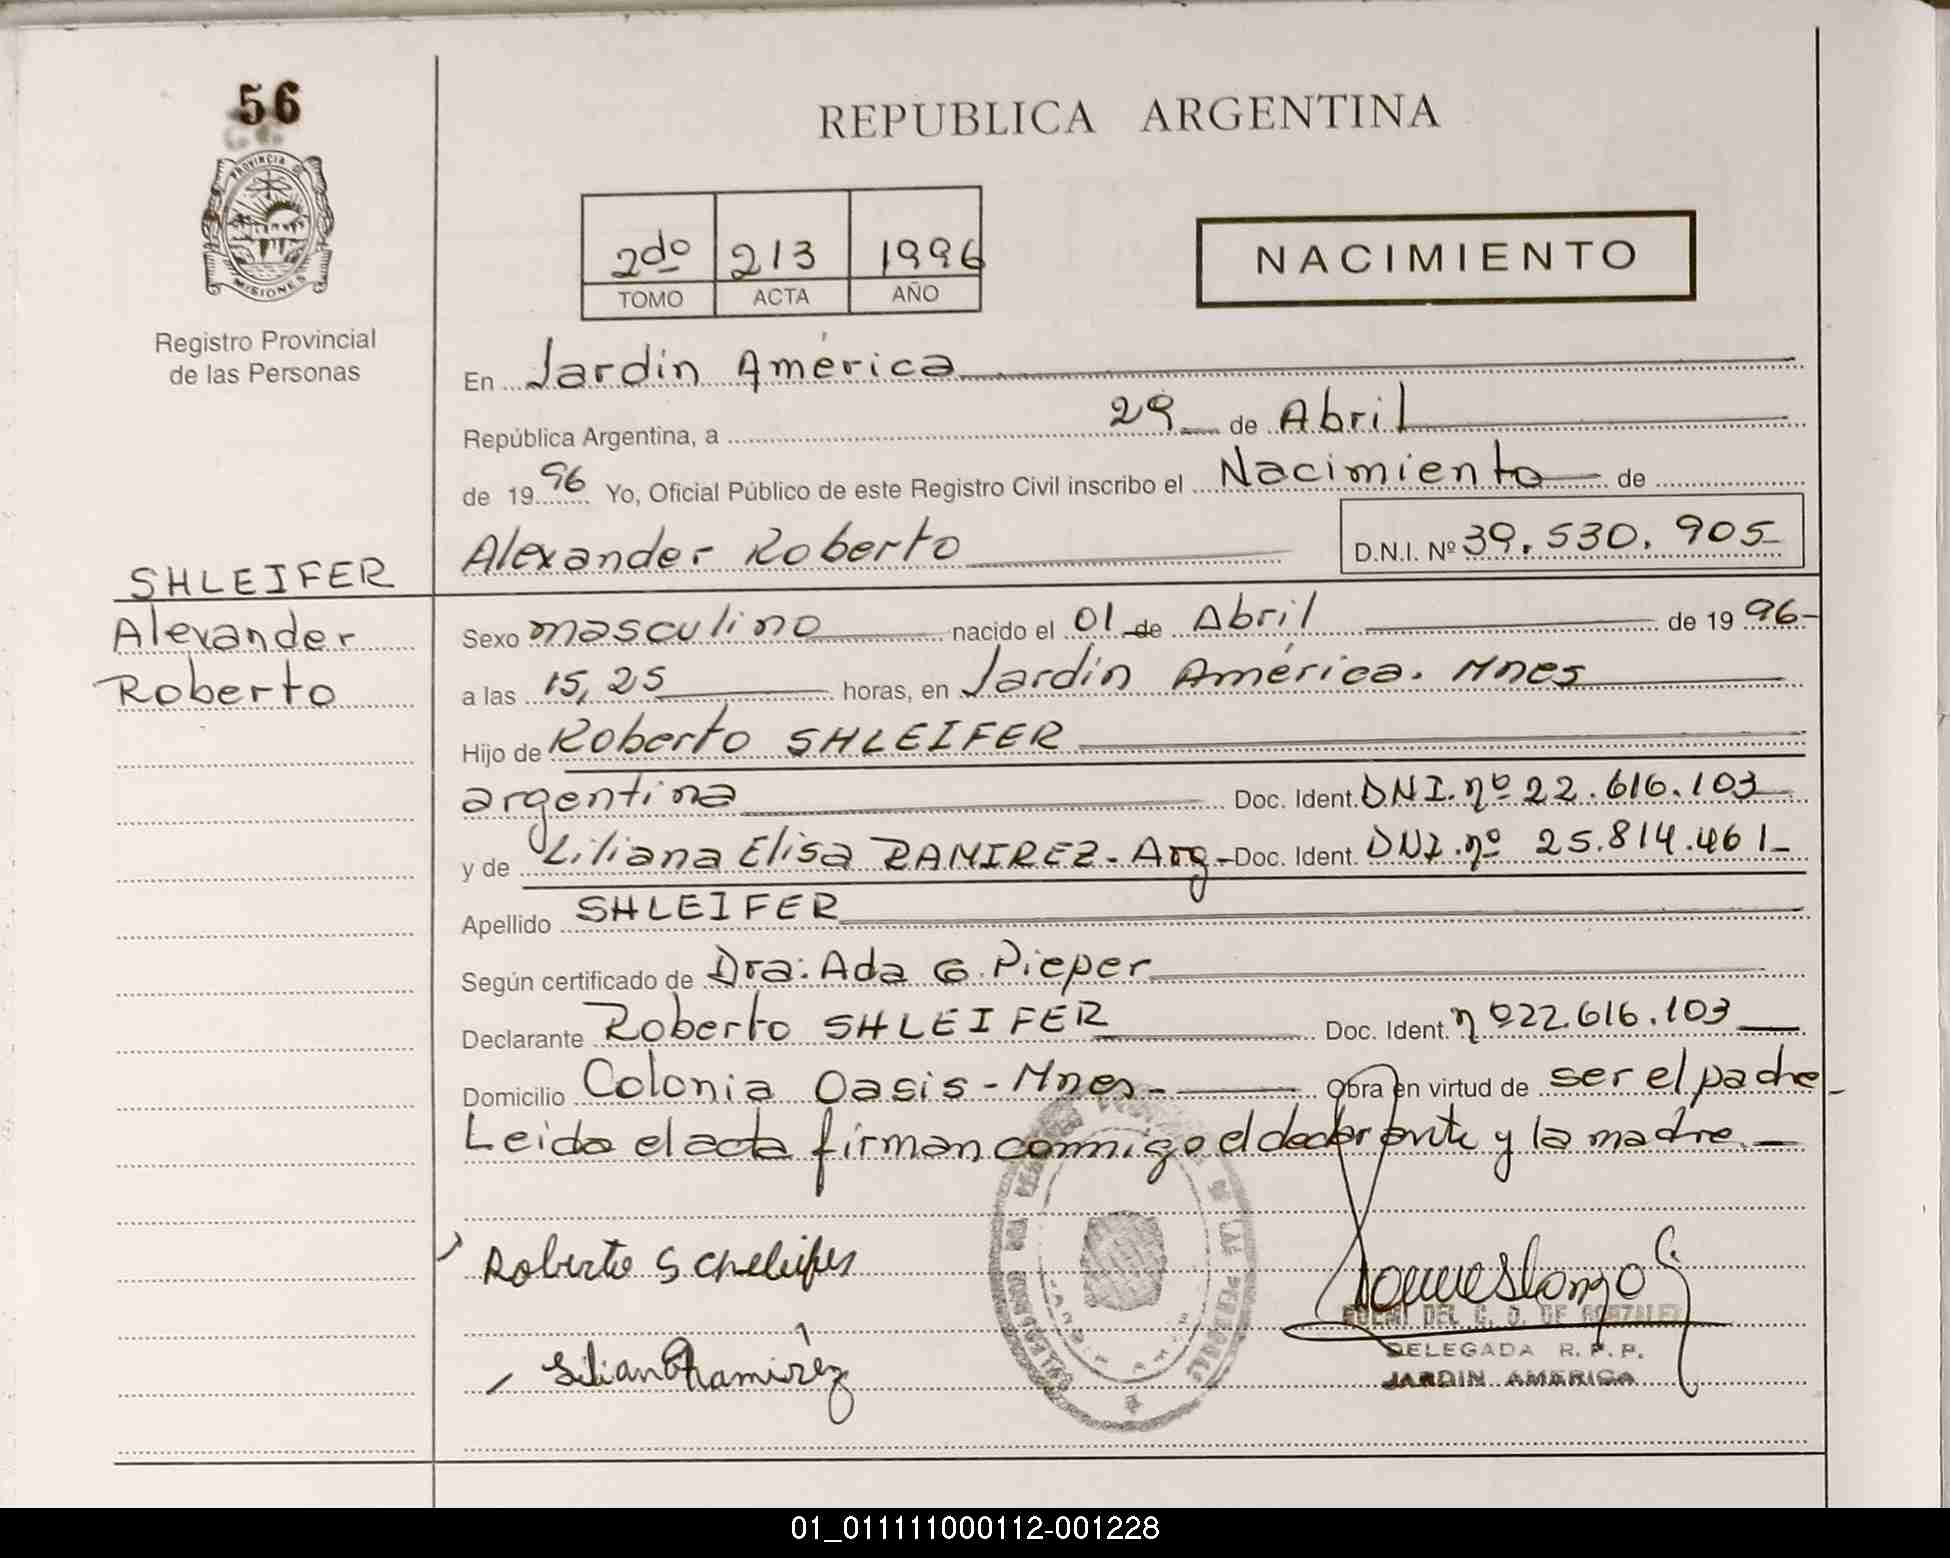 56
PROVINCIA D
MISIONES
Registro Provincial
de las Personas
REPUBLICA ARGENTINA
2do 213 1996
TOMO ACTA AÑO
NACIMIENTO
En Jardín América
República Argentina, a 29 de Abril
de 1996 Yo, Oficial Público de este Registro Civil inscribo el Nacimiento de
Alexander Roberto D.N.I. Nº 39.530.905
SHLEIFER
Alexander
Roberto
Sexo masculino nacido el 01 de Abril de 1996-
a las 15,25 horas, en Jardín América. Mnes
Hijo de Roberto SHLEIFER
argentina Doc. Ident. DNI. nº 22.616.103
y de Liliana Elisa RAMIREZ- Arg- Doc. Ident. DNI. nº 25.814.461-
Apellido SHLEIFER
Según certificado de Dra: Ada G. Pieper
Declarante Roberto SHLEIFER Doc. Ident. nº 22.616.103
Domicilio Colonia Oasis - Mnes- Obra en virtud de ser el padre-
Leida el acta firman conmigo el declarante y la madre.-
Roberto
Liliana Ramírez
DEL C. D. DE GONZALEZ
DELEGADA R. P. P.
JARDIN AMERICA
01_011111000112-001228